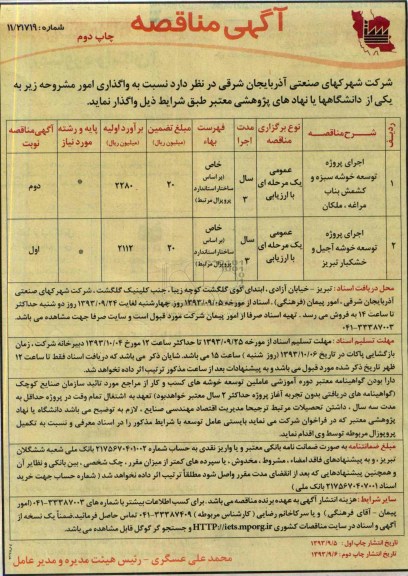 آگهی مناقصه
چاپ دوم
شماره: ۱۱/۲۱۷۱۹
شرکت شهرکهای صنعتی آذربایجان شرقی در نظر دارد نسبت به واگذاری امور مشروحه زیر به
یکی از دانشگاهها یا نهاد های پژوهشی معتبر طبق شرایط ذیل واگذار نماید.
ردیف
شرح مناقصه
نوع برگزاری مناقصه
مدت اجرا
فهرست بهاء
مبلغ تضمین (میلیون ریال)
برآورد اولیه (میلیون ریال)
پایه و رشته مورد نیاز
آگهی مناقصه نوبت
۱
اجرای پروژه
توسعه خوشه سبزه و
کشمش بناب
مراغه، ملکان
عمومی
یک مرحله ای
با ارزیابی
۳ سال
خاص
(براساس
ساختار استاندارد
پروپزال مرتبط)
۲۰
۲۲۸۰
*
دوم
۲
اجرای پروژه
توسعه خوشه آجیل و
خشکبار تبریز
عمومی
یک مرحله ای
با ارزیابی
۳ سال
خاص
(براساس
ساختار استاندارد
پروپزال مرتبط)
۲۰
۲۱۱۲
*
اول
محل دریافت اسناد: تبریز - خیابان آزادی، ابتدای گوی گلگشت کوچه زیبا، جنب کلینیک گلگشت، شرکت شهرکهای صنعتی
آذربایجان شرقی، امور پیمان (فرهنگی). اسناد از مورخه ۱۳۹۳/۰۹/۰۵ روز چهارشنبه لغایت ۱۳۹۳/۰۹/۲۴ روز دو شنبه حداکثر
تا ساعت ۱۴ به فروش می رسد. تهیه اسناد صرفا از امور پیمان شرکت مورد قبول است و سایت صرفا جهت مشاهده می باشد.
۰۴۱-۳۳۳۸۷۰۰۳
مهلت تسلیم اسناد: مهلت تسلیم اسناد از مورخه ۱۳۹۳/۰۹/۲۵ تا حداکثر ساعت ۱۲ مورخ ۱۳۹۳/۱۰/۰۴ دبیرخانه شرکت، زمان
بازگشایی پاکات در تاریخ ۱۳۹۳/۱۰/۰۶ (روز شنبه) ساعت ۱۵ می باشد. شایان ذکر می باشد که دریافت اسناد فقط تا ساعت ۱۲
ظهر تاریخ ذکر شده مورد قبول می باشد و به پیشنهادات بعد از ساعت مذکور ترتیب اثر داده نخواهد شد.
دارا بودن گواهینامه معتبر دوره آموزشی عاملین توسعه خوشه های کسب و کار از مراجع مورد تائید سازمان صنایع کوچک
(گواهینامه های دریافتی بدون تجربه آغاز پروژه حداکثر ۲ سال معتبر خواهدبود) تعهد به اشتغال تمام وقت در پروژه حداقل به
مدت سه سال، داشتن تحصیلات مرتبط ترجیحا مدیریت اقتصاد مهندسی صنایع، لازم به توضیح می باشد دانشگاه یا نهاد
پژوهشی معتبر که در فراخوان شرکت می نماید بایستی عامل توسعه با شرایط مذکور را در اسناد معرفی و نسبت به تکمیل
پروپوزال مربوطه توسط وی اقدام نماید.
مبلغ ضمانتنامه به صورت ضمانت نامه بانکی معتبر و یا واریز نقدی به حساب شماره ۲۱۷۵۶۷۰۴۰۱۰۰۲ بانک ملی شعبه ششگلان
تبریز و به پیشنهادهای فاقد امضاء، مشروط، مخدوش، یا سپرده های کمتر از میزان مقرر، چک شخصی، بین بانکی و نظایر آن
و همچنین پیشنهادهایی که بعد از انقضای مدت مقرر واصل شود مطلقاً ترتیب اثر داده نخواهد شد (شماره حساب جهت خرید
اسناد ۲۱۷۵۶۷۰۴۰۷۰۰۱ بانک ملی)
سایر شرایط: هزینه انتشار آگهی به عهده برنده مناقصه می باشد. برای کسب اطلاعات بیشتر با شماره های ۳۳۳۸۷۰۰۳-۰۴۱ (امور
پیمان - آقای فرهنگی) و یا سرکارخانم رضایی (کارشناس مربوطه) ۳۳۳۸۷۴۰۹-۰۴۱ تماس حاصل فرمائید. ضمناً یک نسخه از
آگهی و اسناد در سایت مناقصات کشوری HTTP://iets.mporg.ir و جستجو گر گوگل قابل مشاهده می باشد.
تاریخ انتشار چاپ اول: ۱۳۹۳/۹/۵
تاریخ انتشار چاپ دوم: ۱۳۹۳/۹/۶
محمد علی عسگری - رئیس هیئت مدیره و مدیر عامل